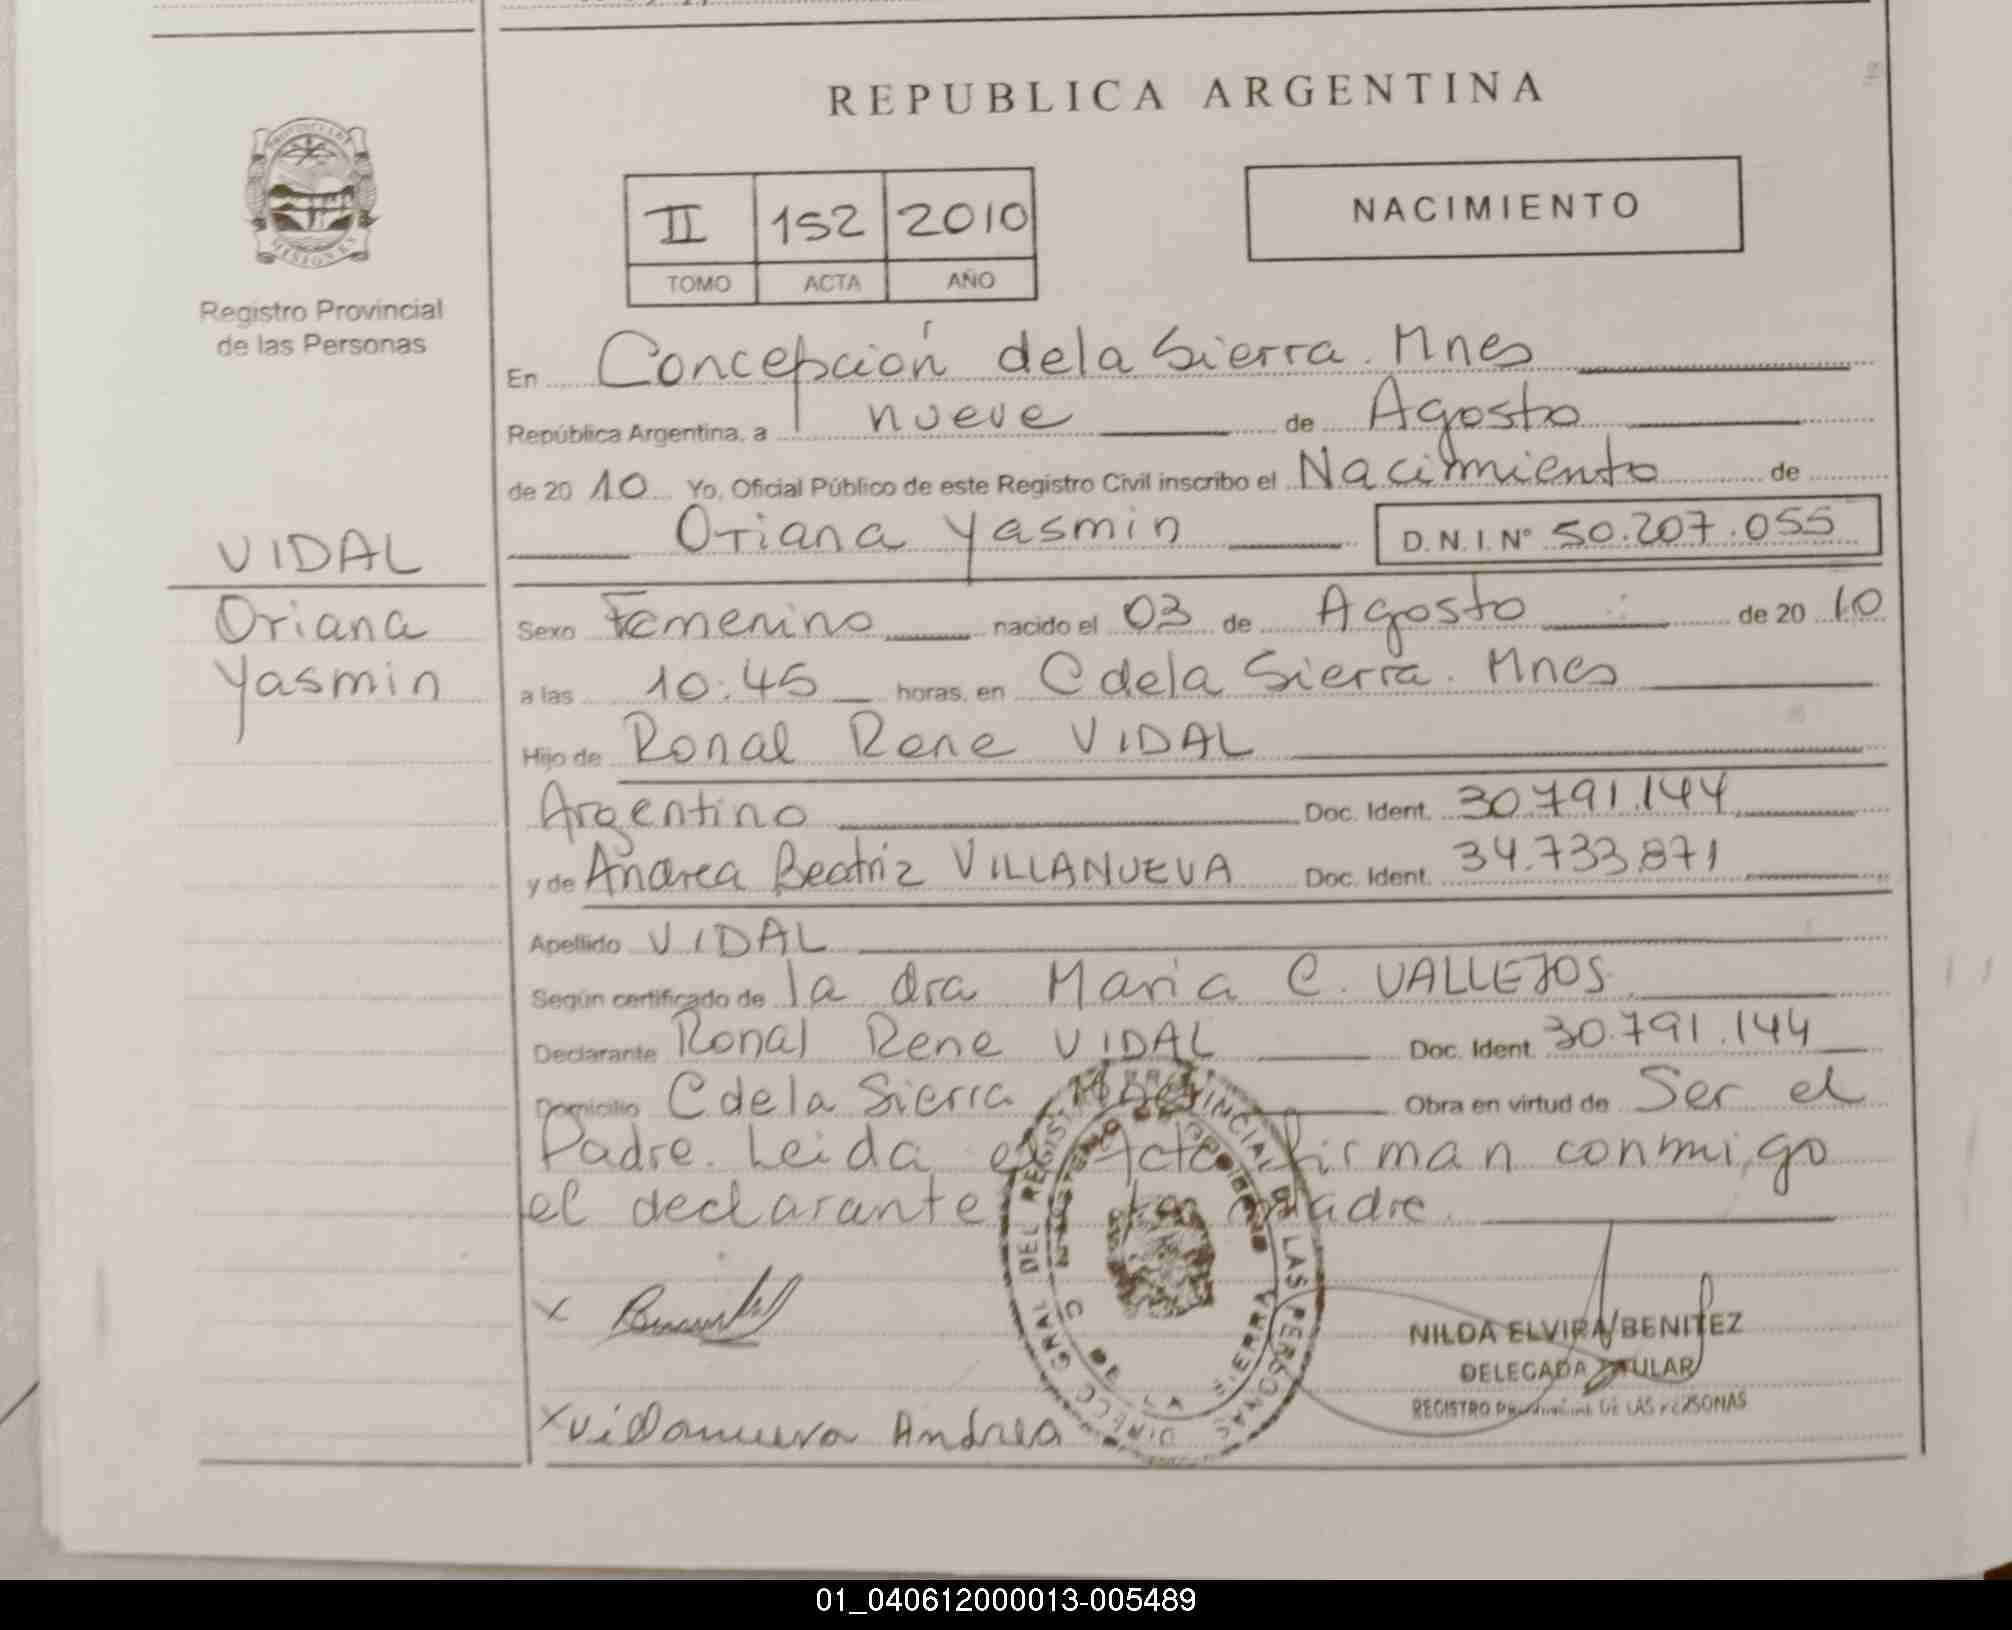 REPUBLICA ARGENTINA
PROVINCIA DE
MISIONES
Registro Provincial
de las Personas
II 152 2010
TOMO ACTA AÑO
NACIMIENTO
VIDAL
Oriana
Yasmin
En Concepción de la Sierra. Mnes
República Argentina, a nueve de Agosto
de 20 10 Yo, Oficial Público de este Registro Civil inscribo el Nacimiento de
Oriana Yasmin D.N.I.Nº 50.207.055
Sexo Femenino nacido el 03 de Agosto de 20 10
a las 10:45 horas, en C de la Sierra. Mnes
Hijo de Ronal Rene VIDAL
Argentino Doc. Ident. 30.791.144
y de Andrea Beatriz VILLANUEVA Doc. Ident. 34.733.871
Apellido VIDAL
Según certificado de la dra Maria C. VALLEJOS
Declarante Ronal Rene VIDAL Doc. Ident. 30.791.144
Domicilio C de la Sierra Obra en virtud de Ser el
Padre. Leida el Acta firman conmigo
el declarante la Madre
DIRECC GRAL DEL REGISTRO PROVINCIAL DE LAS PERSONAS
LA SIERRA
x
NILDA ELVIRA BENITEZ
DELEGADA TITULAR
REGISTRO PROVINCIAL DE LAS PERSONAS
x Villanueva Andrea
01_040612000013-005489